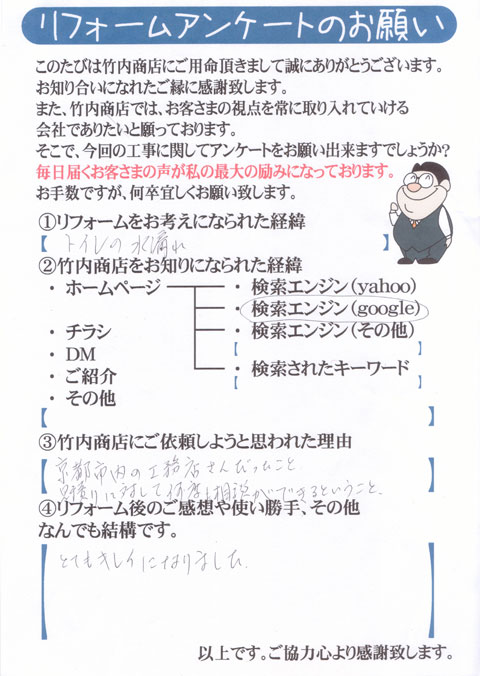 リフォームアンケートのお願い
このたびは竹内商店にご用命頂きまして誠にありがとうございます。
お知り合いになれたご縁に感謝致します。
また、竹内商店では、お客さまの視点を常に取り入れていける
会社でありたいと願っております。
そこで、今回の工事に関してアンケートをお願い出来ますでしょうか?
毎日届くお客さまの声が私の最大の励みになっております。
お手数ですが、何卒宜しくお願い致します。
①リフォームをお考えになられた経緯
【トイレの水漏れ】
②竹内商店をお知りになられた経緯
・ホームページ
・検索エンジン(yahoo)
・検索エンジン(google)
・検索エンジン(その他)
【 】
・検索されたキーワード
【 】
・チラシ
・DM
・ご紹介
・その他
【 】
③竹内商店にご依頼しようと思われた理由
【京都市内の工務店さんだったこと。
見積りに対して何度も相談ができるということ。】
④リフォーム後のご感想や使い勝手、その他
なんでも結構です。
【とてもキレイになりました。】
以上です。ご協力心より感謝致します。